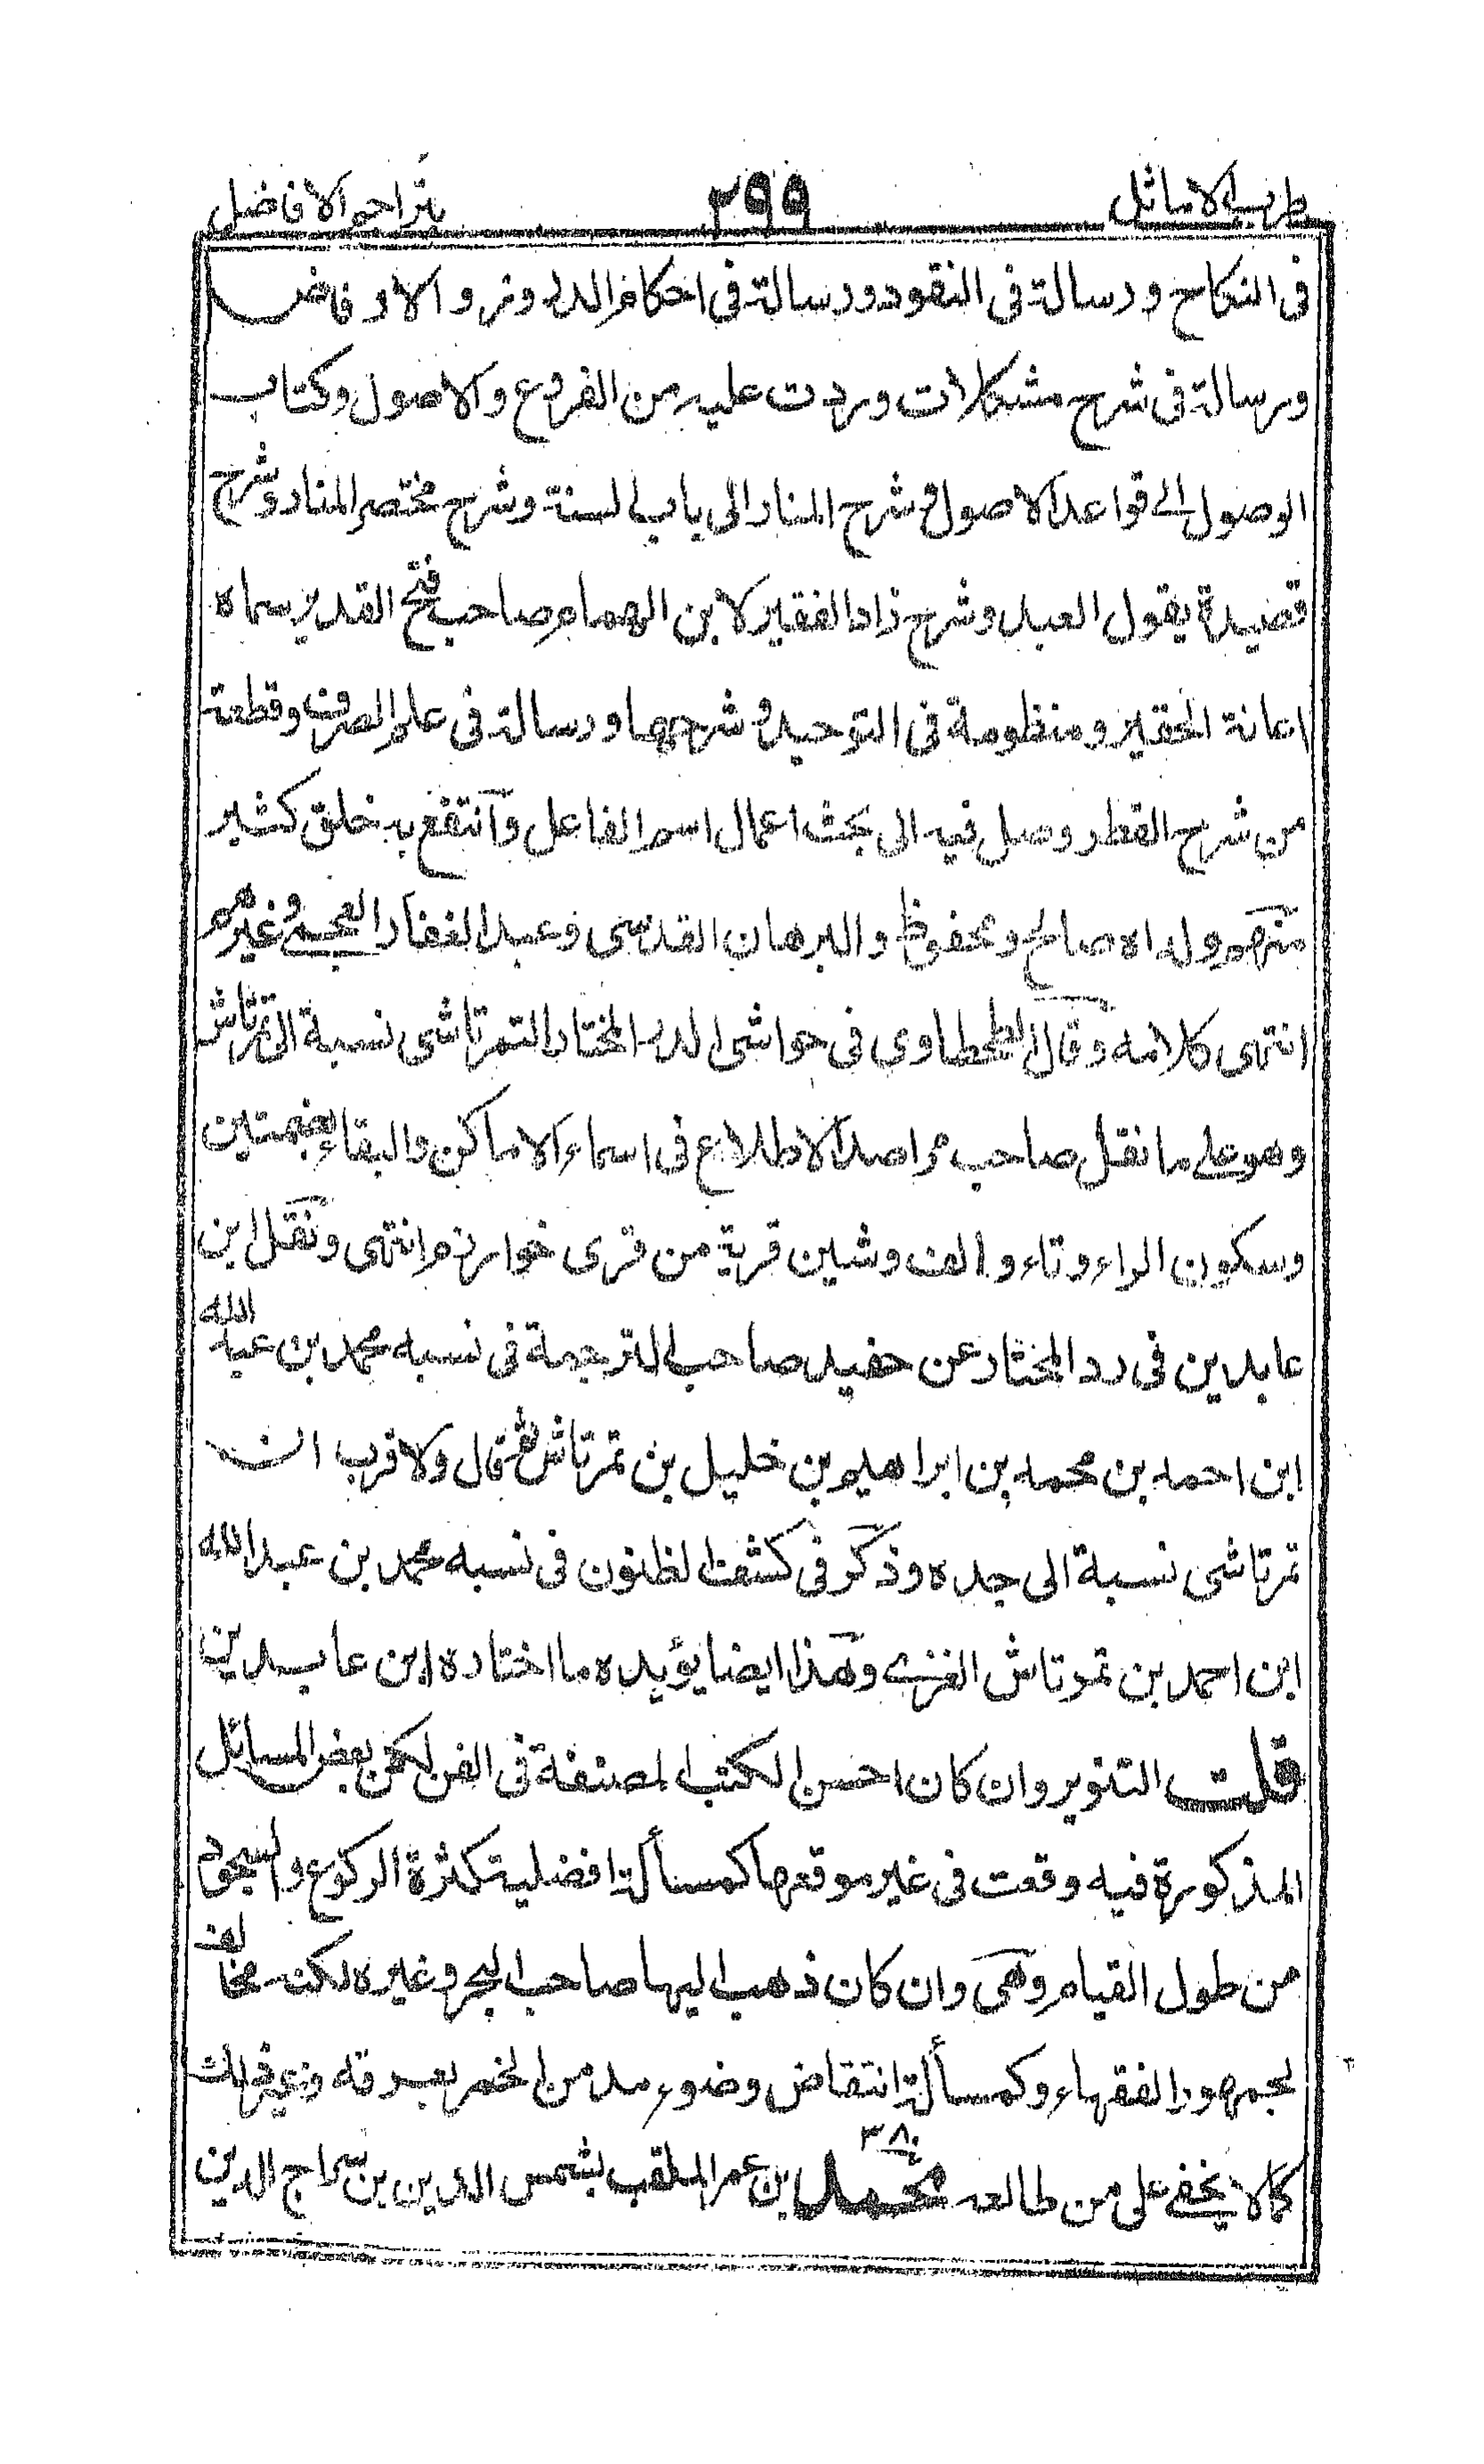 طرب الاماثل ٢٩٩ بتراجم الافاضل
فى النكاح ورسالة فى النقود ورسالة فى احكام الدروز والارفاض
ورسالة فى شرح مشكلات وردت عليه من الفروع والاصول وكتاب
الوصول الى قواعد الاصول وشرح المنار الى باب السنة وشرح مختصر المنار وشرح
قصيدة يقول العبد وشرح زاد الفقير لابن الهمام صاحب فتح القدير سماه
اعانة الحقير ومنظومة فى التوحيد وشرحها ورسالة فى علم الصرف وقطعة
من شرح القطر وصل فيه الى بحث اعمال اسم الفاعل وانتفع به خلق كثير
منهم ولداه صالح ومحفوظ والبرهان القدسى وعبد الغفار العجمى وغيرهم
انتهى كلامه وقال الطحطاوى فى حواشى الدر المختار التمرتاشى نسبة الى تمرتاش
وهو على ما نقل صاحب مراصد الاطلاع فى اسماء الاماكن والبقاع بضمتين
وسكون الراء وتاء والف وشين قرية من قرى خوارزم انتهى ونقل ابن
عابدين فى رد المختار عن حفيد صاحب الترجمة فى نسبه محمد بن عبد الله
ابن احمد بن محمد بن ابراهيم بن خليل بن تمرتاش ثم قال والاقرب ان
تمرتاشى نسبة الى جده وذكر فى كشف الظنون فى نسبه محمد بن عبد الله
ابن احمد بن تمرتاش الغزى وهذا ايضا يؤيده ما اختاره ابن عابدين
قلت التنوير وان كان احسن الكتب المصنفة فى الفن لكن بعض المسائل
المذكورة فيه وقعت فى غير موقعها كمسألة افضلية كثرة الركوع والسجود
من طول القيام وهى وان كان ذهب اليها صاحب البحر وغيره لكنه مخالف
لجمهور الفقهاء وكمسألة انتقاض وضوء مدمن الخمر بعرقه وغير ذلك
كما لا يخفى على من طالعه ٣٨٠ محمد بن عمر الملقب بشمس الدين بن سراج الدين